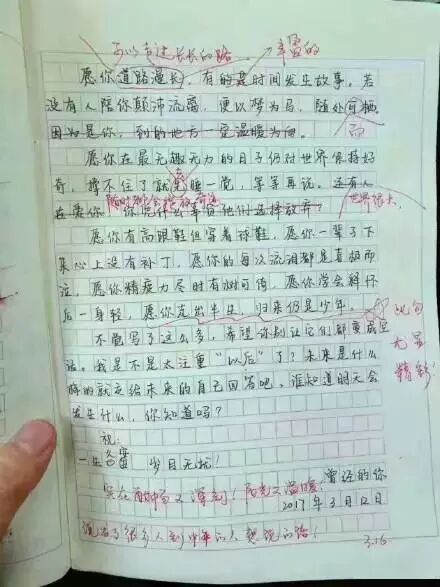 可以走过长长的路 丰富的
愿你道路漫长,有的是时间发生故事。若
没有人陪你颠沛流离,便以梦为马,随处可栖
因为是你,到的地方一定温暖为向。 而
愿你在最无趣无力的日子仍对世界保持好
奇,撑不住了就先睡一觉,等等再说。还有人
在爱你,你凭什么辜负他们选择放弃? 世界很大
愿你有高跟鞋但穿着球鞋,愿你一辈子下
来心上没有补丁,愿你的每次流泪都是喜极而
泣,愿你精疲力尽时有树可倚,愿你学会释怀
后一身轻,愿你走出半生,归来仍是少年。 此句
尤显
精彩!
不觉写了这么多,希望你别让它们都变成空
话。我是不是太注重“以后”了?未来是什么
样的就交给未来的自己回答吧。谁知道明天会
发生什么,你知道吗?
祝:
一生 岁月无忧!
曾经的你
2017年3月12日
说出了很多人到中年的人想说的话!
3.16